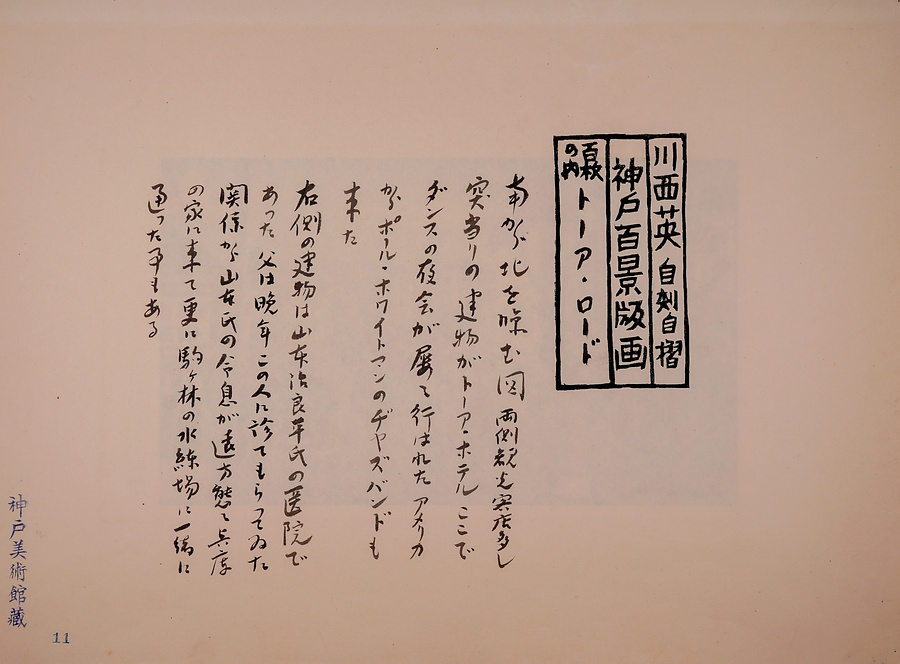 川西英 自刻自摺
神戸百景版画
百枚の内 トーア・ロード
南から北を眺む図 両側観光客店多し
突当りの建物がトーア・ホテル ここで
ダンスの夜会が屡々行はれた アメリカ
から ポール・ホワイトマンのヂャズバンドも
来た
右側の建物は山本治良平氏の医院で
あった 父は晩年この人に診てもらってゐた
関係から山本氏の令息が遠方態々兵庫
の家に来て更に駒ヶ林の水練場に一緒に
通った事もある
神戸美術館蔵
11